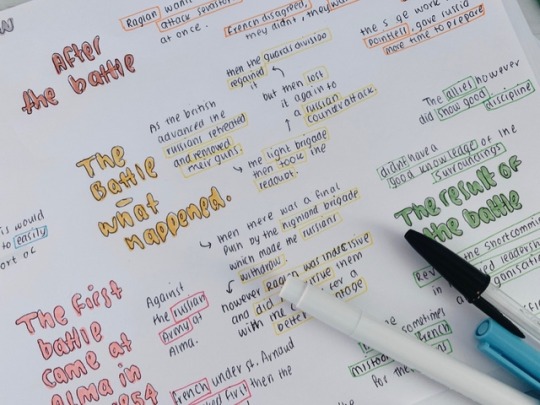 Raglan
attack
at once.
French disagreed,
they didn't, they
pointless, gave russia
more time to prepare
After
the battle
then the guards division
regained it
but then lost
it again to
a russian
counterattack.
As the british
advanced the
russians retreated
and removed
their guns.
the light brigade
then took the
redoubt.
The
Battle
-
what
happened.
then there was a final
push by the highland brigade
which made the russians
withdraw.
however Raglan was indecisive
and did
with the
The allies however
did show good discipline
didn't have a
good knowledge of the
surroundings
The result of
the battle
the shortcomings
leadership
sometimes
french
for the
is would
to easily
ort of
The first
battle
came at
Alma in
Against
the russian
Army at
Alma.
French under St. Arnaud
first then the